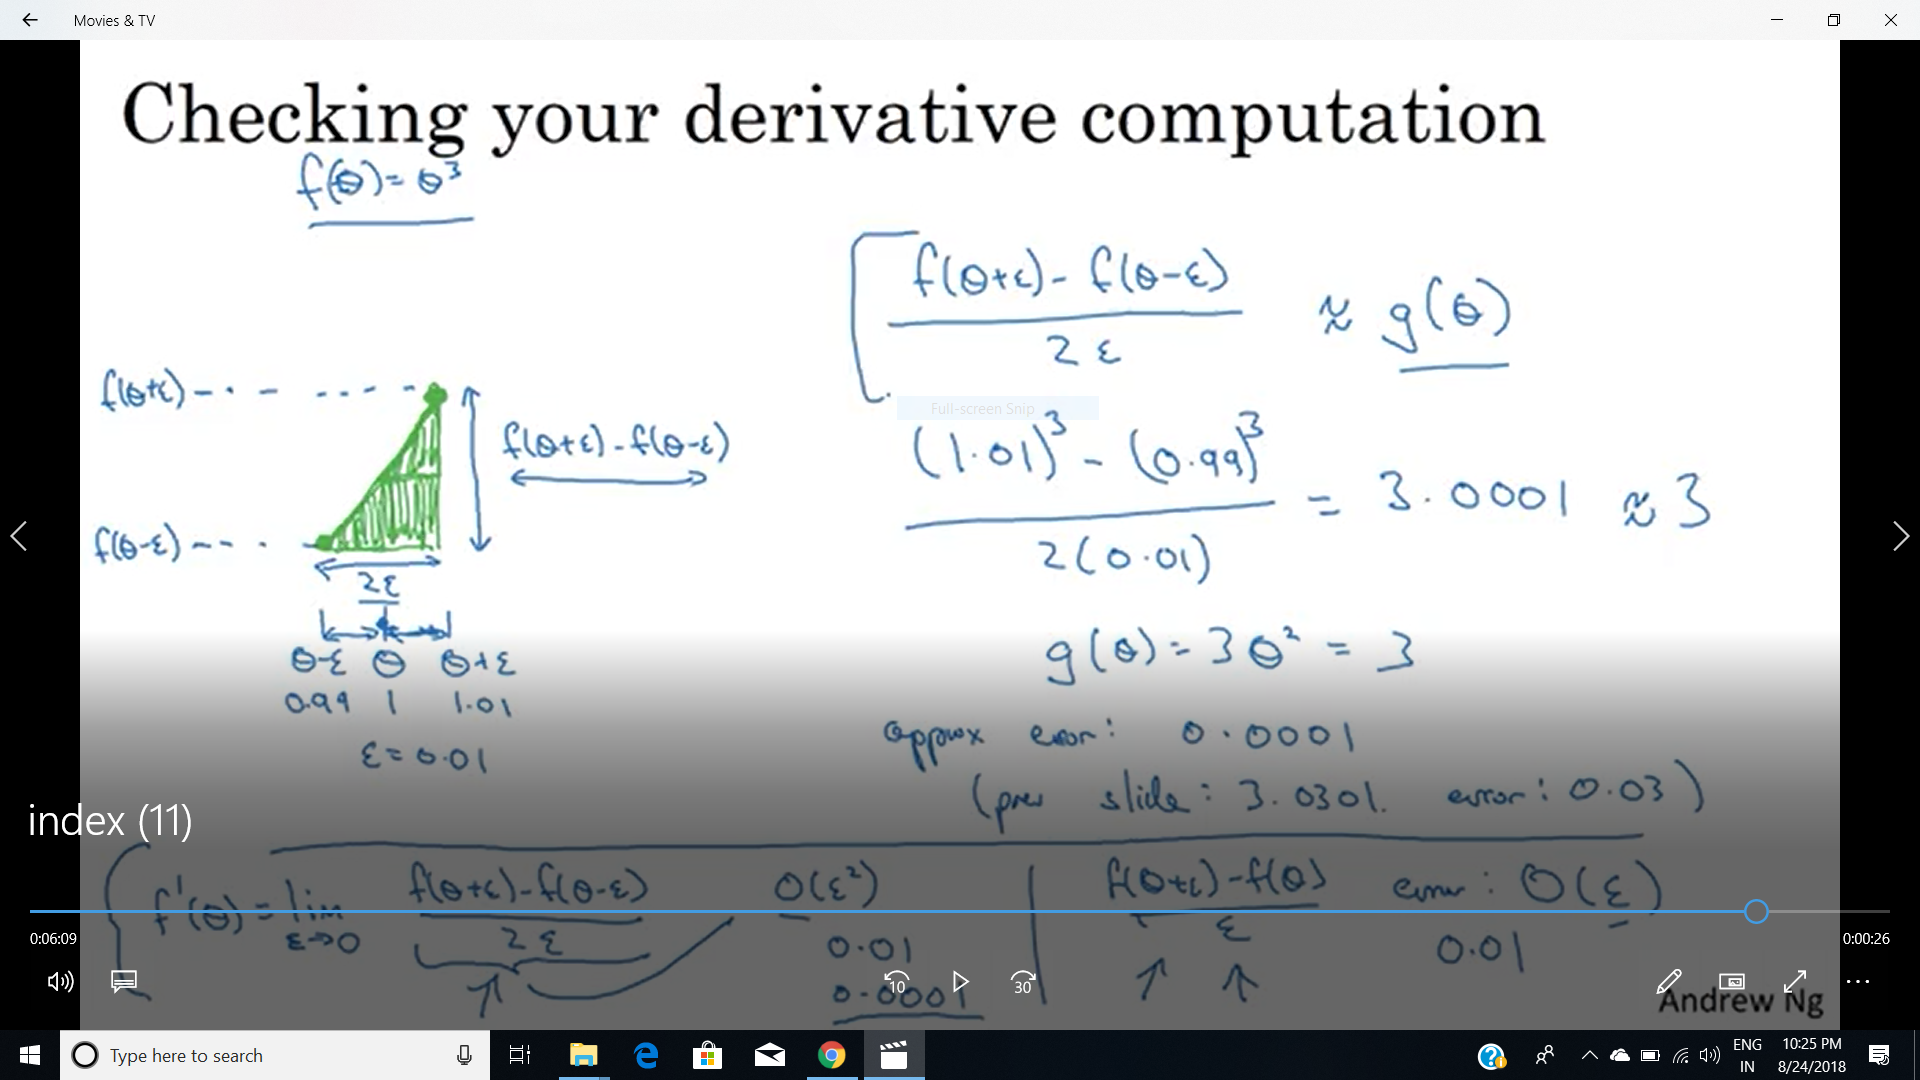 Movies & TV
Checking your derivative computation
f(θ) = θ³
f(θ+ε) - f(θ-ε)
2ε
≈ g(θ)
f(θ+ε)
f(θ+ε) - f(θ-ε)
Full-screen Snip
(1.01)³ - (0.99)³
2(0.01)
= 3.0001 ≈ 3
f(θ-ε)
2ε
θ-ε θ θ+ε
0.99 1 1.01
ε = 0.01
g(θ) = 3θ² = 3
approx error: 0.0001
(prev slide: 3.0301. error: 0.03)
index (11)
f'(θ) = lim ε→0
f(θ+ε) - f(θ-ε)
2ε
O(ε²)
0.01
0.0001
f(θ+ε) - f(θ)
ε
error: O(ε)
0.01
0:06:09
0:00:26
10
30
Andrew Ng
Type here to search
ENG
IN
10:25 PM
8/24/2018